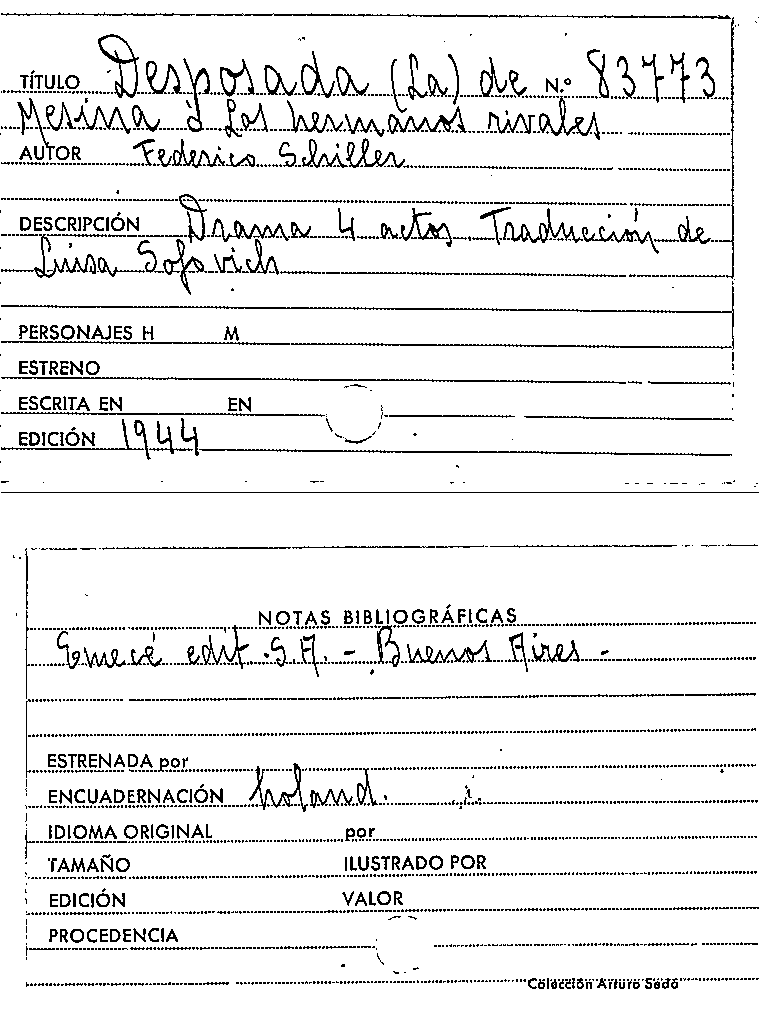 TÍTULO Desposada (La) de N.o 83773
Mesina o Los hermanos rivales
AUTOR Federico Schiller
DESCRIPCIÓN Drama 4 actos. Traducción de
Luisa Sofovich
PERSONAJES H M
ESTRENO
ESCRITA EN EN
EDICIÓN 1944
NOTAS BIBLIOGRÁFICAS
Emecé edit. S.A. - Buenos Aires -
ESTRENADA por
ENCUADERNACIÓN holand.
IDIOMA ORIGINAL por
TAMAÑO ILUSTRADO POR
EDICIÓN VALOR
PROCEDENCIA
Colección Arturo Sedó